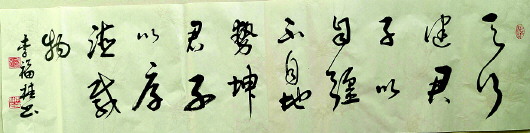 天行
健君
子以
自彊
不息地
勢坤
君子
以厚
德載
物
李福书